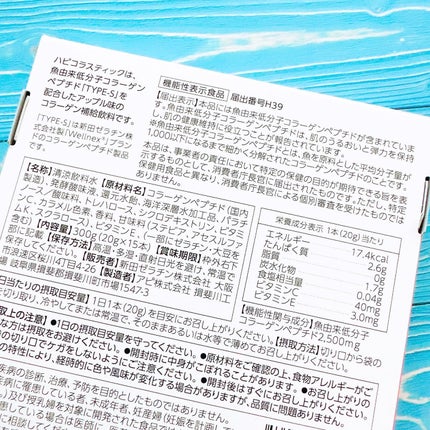 ハピコラスティックは、
魚由来低分子コラーゲン
ペプチド「TYPE-S」を
配合したアップル味の
コラーゲン補給飲料です。
「TYPE-S」は新田ゼラチン株
式会社製「iWellnex®」ブラン
ドのコラーゲンペプチド製品
です。
機能性表示食品 届出番号H39
【届出表示】本品には魚由来低分子コラーゲンペプチドが含まれていま
す。魚由来低分子コラーゲンペプチドは、肌のうるおいと弾力を保持
し、肌の健康維持に役立つことが報告されています。
※魚由来低分子コラーゲンペプチドは、魚を原料とした平均分子量が
1,000以下になるまで細かく分解されたコラーゲンペプチドです。
本品は、事業者の責任において特定の保健の目的が期待できる旨を表
示するものとして、消費者庁長官に届出されたものです。ただし、特定
保健用食品と異なり、消費者庁長官による個別審査を受けたものでは
ありません。
【名称】清涼飲料水 【原材料名】コラーゲンペプチド(国内
製造)、発酵酸味液、還元水飴、海洋深層水加工品、パラチ
ノース/酸味料、トレハロース、シクロデキストリン、ビタミ
ンC、カラメル色素、香料、甘味料(ステビア、アセスルファムK、
スクラロース)、ビタミンE、(一部にゼラチン・大豆を
含む) 300g(20g×15本) 【賞味期限】枠外右下
に記載 【保存方法】高温・多湿・直射日光を避け、常温で
保存 【販売者】新田ゼラチン株式会社 大阪
市浪速区桜川4-4-26 【製造者】アピ株式会社 揖斐川工
場 岐阜県揖斐郡揖斐川町市場1542-3
栄養成分表示 1本(20g)当たり
エネルギー 17.4kcal
たんぱく質 2.6g
脂質 0g
炭水化物 1.7g
食塩相当量 0.04g
ビタミンC 40mg
ビタミンE 3.0mg
【機能性関与成分】魚由来低分子
コラーゲンペプチド2,500mg
1日当たりの摂取目安量】1日1本(20g)を目安にお召し上がりください。 【摂取方法】切り口から袋の
切り取り、冷やしてまたは常温で、そのままあるいは水等で薄めてお召し上がりください。
取上の注意】 ●1日の摂取目安量を守ってください。 ●原材料をご確認の上、食物アレルギーがご
方は摂取をお避けください。 ●開封時に中身がこぼれることがあります。 ●お召し上がりの
の切り口でケガをしないようにご注意ください。 ●開封後はすぐにお召し上がりください。
の特性により、経時的に色や風味が変化する場合がありますが、品質に問題ありません。
疾病の診断、治療、予防を目的としたものではありません。
に罹患している者、未成年者、妊産婦(妊娠を計画し
及び授乳婦を対象に開発された食品では
罹患している場合は医師に、